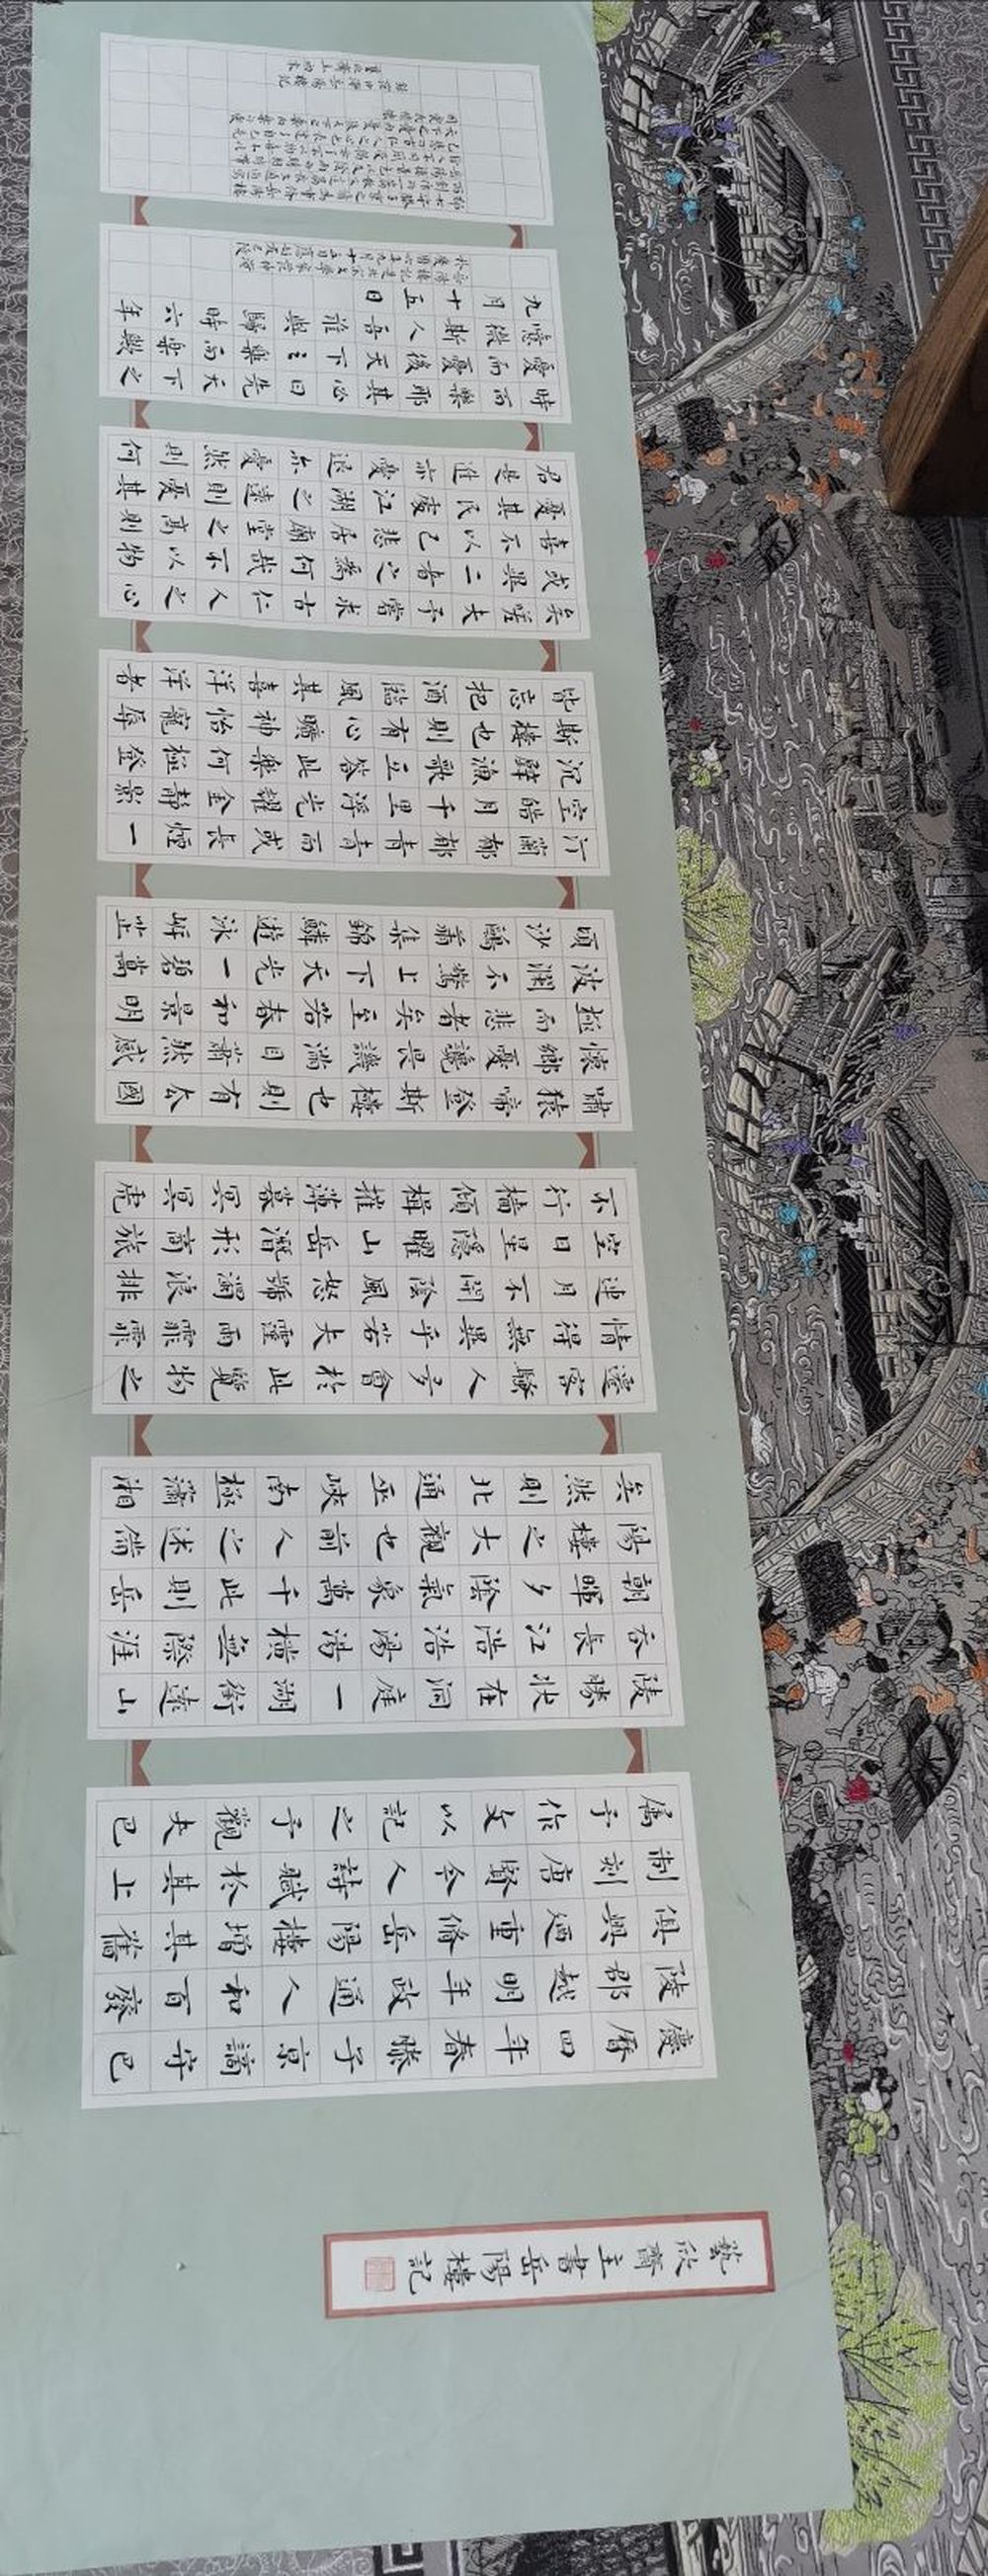 藝欣齋主書岳陽樓記
慶曆四年春滕子京謫守巴
陵郡越明年政通人和百廢
俱興廼重脩岳陽樓增其舊
制刻唐賢今人詩賦於其上
属予作文以記之予觀夫巴
陵勝狀在洞庭一湖銜遠山
吞長江浩浩湯湯橫無際涯
朝暉夕陰氣象萬千此則岳
陽樓之大觀也前人之述備
矣然則北通巫峽南極瀟湘
遷客騷人多會於此覽物之
情得無異乎若夫霪雨霏霏
連月不開陰風怒號濁浪排
空日星隱曜山岳潛形商旅
不行檣傾楫摧薄暮冥冥虎
嘯猿啼登斯樓也則有去國
懷鄉憂讒畏譏滿目蕭然感
極而悲者矣至若春和景明
波瀾不驚上下天光一碧萬
頃沙鷗翔集錦鱗遊泳岸芷
汀蘭郁郁青青而或長煙一
空皓月千里浮光耀金靜影
沉璧漁歌互答此樂何極登
斯樓也則有心曠神怡寵辱
皆忘把酒臨風其喜洋洋者
矣嗟夫予嘗求古仁人之心
或異二者之為何哉不以物
喜不以己悲居廟堂之高則
憂其民處江湖之遠則憂其
君是進亦憂退亦憂然則何
時而樂耶其必曰先天下之
憂而憂後天下之樂而樂歟
噫微斯人吾誰與歸時六年
九月十五日